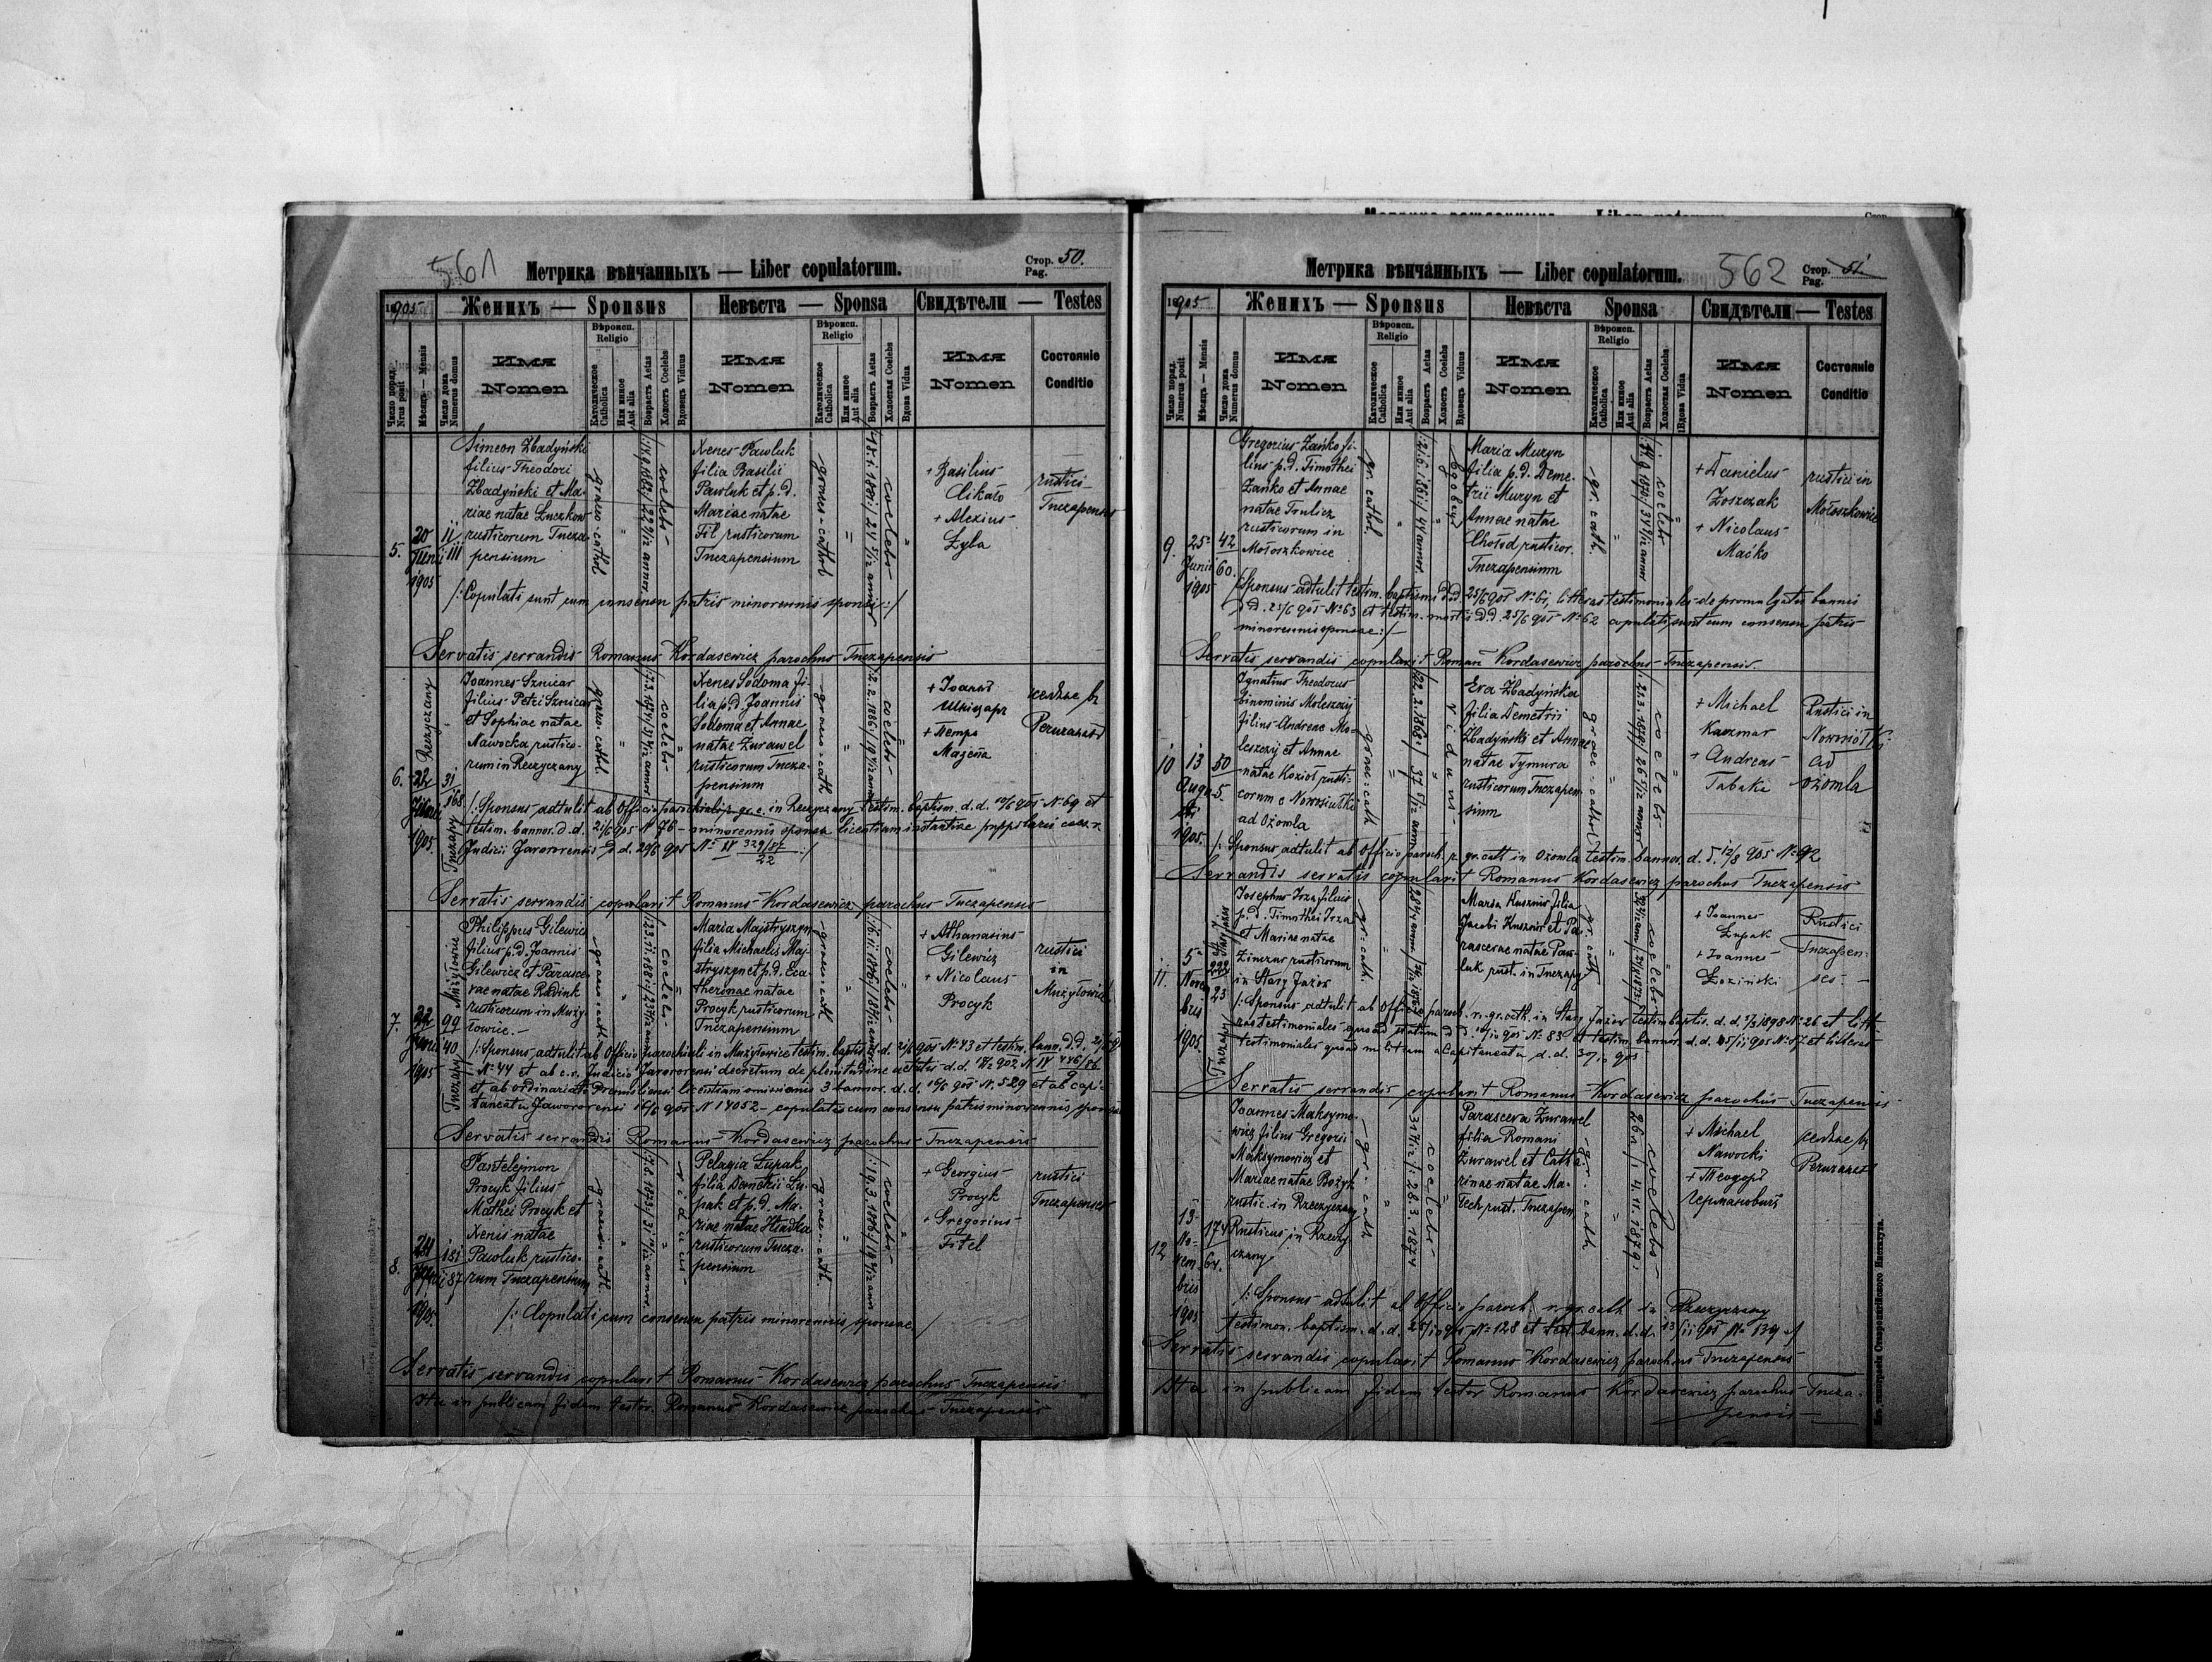 561
Метрика вѣнчанныхъ — Liber copulatorum.
Стор. 50.
Pag.
1905
Женихъ — Sponsus
Невѣста — Sponsa
Свидѣтели — Testes
Число поряд.
Nrus posit
Мѣсяць — Mensis
Число дома
Numerus domus
Имя
Nomen
Вѣроисп.
Religio
Католическое
Catholica
Или иное
Aut alia
Возрастъ Aetas
Холостъ Coelebs
Вдовецъ Viduus
Имя
Nomen
Вѣроисп.
Religio
Католическое
Catholica
Или иное
Aut alia
Возрастъ Aetas
Холостая Coelebs
Вдова Vidua
Имя
Nomen
Состояніе
Conditio
5.
20
Junii
1905
11
111
Simeon Zbadyński
filius Theodori
Zbadyński et Ma-
riae natae Łuczkow
rusticorum Tucza-
pensium
graeco-cathol
coelebs
Xenes Pawluk
filia Basilii
Pawluk et p.d.
Mariae natae
Fil rusticorum
Tuczapensium
graeco-cathol
coelebs
+ Basilius
Cikało
+ Alexius
Zyba
rustici
Tuczapenses
/:Copulati sunt cum consensu patris minorennis sponsi:/
Servatis servandis Romanus Kordasewicz parochus Tuczapensis
6.
22
Junii
1905.
Rzeczyczany
31
168
Tuczapy
Joannes Sznicar
filius Petri Sznicar
et Sophiae natae
Nawocka rustico-
rum in Rzeczyczany
graeco cathol
coelebs
Xenes Sodoma fi-
lia p.d. Joannis
Sodoma et Annae
natae Żurawel
rusticorum Tucza-
pensium
graeco-cath
coelebs
+ Іоаннъ
Шніцаръ
+ Петро
Мазепа
/:Sponsus adtulit ab Officio parochiali gr. c. in Rzeczyczany testim. baptism. d.d. 19/6 905 N. 69 et
testim. bannor. d.d. 21/6 905 N 76 - minorennis sponsa licentiam
Judicii Javororensis d.d. 20/6 905 N. IV 329/87
22
:/
Servatis servandis copulavit Romanus Kordasewicz parochus Tuczapensis
7.
22
Junii
1905
Mużyłowice
99
40
Tuczapy
Philippus Gilewicz
filius p.d. Joannis
Gilewicz et Parasce-
vae natae Rudink
rusticorum in Muży-
łowice.-
graeco cath
coelebs
Maria Majstryszyn
filia Michaelis Maj-
stryszyn et p.d. Eca-
therinae natae
Procyk rusticorum
Tuczapensium
graeco-cath
coelebs
+ Athanasius
Gilewicz
+ Nicolaus
Procyk
rustici
in
Mużyłowice
/:Sponsus adtulit ab Officio parochiali in Mużyłowice testim. baptis. d.d. 21/6 905 N. 43 et testim. bann. d.d.
N. 44 et ab c.r. Judicio Javororensi decretum de plenitudine aetatis
et ab ordinariatu Premisliensi licentiam omissionis 3 bannor. d.d. 16/6 905 N. 529 et ab capi-
taneatu Jaworensi 16/6 905 N 14052 - copulatis cum consensu patris minorennis sponsae
Servatis servandis Romanus Kordasewicz parochus Tuczapensis
8.
24
Junii
1905.
181
87
Pantelejmon
Procyk filius
Mathei Procyk et
Xenis natae
Pawluk rustico-
rum Tuczapensium
graeco-cath
viduus
Pelagia Łupak
filia Danielis Łu-
pak et p.d. Ma-
riae natae Hladka
rusticorum Tucza-
pensium
graeco-cath
coelebs
+ Georgius
Procyk
+ Gregorius
Fitel
rustici
Tuczapenses
/:Copulati cum consensu patris minorennis sponsae:/
Servatis servandis copulavit Romanus Kordasewicz parochus Tuczapensis
Ita in publicam fidem testor Romanus Kordasewicz parochus Tuczapensis
Метрика вѣнчанныхъ — Liber copulatorum.
562
Стор. 51
Pag.
1905
Женихъ — Sponsus
Невѣста Sponsa
Свидѣтели — Testes
Число поряд.
Numerus posit
Мѣсяць — Mensis
Число дома
Numerus domus
Имя
Nomen
Вѣроисп.
Religio
Католическое
Catholica
Или иное
Aut alia
Возрастъ Aetas
Холостъ Coelebs
Вдовецъ Viduus
Имя
Nomen
Вѣроисп.
Religio
Католическое
Catholica
Или иное
Aut alia
Возрастъ Aetas
Холостая Coelebs
Вдова Vidua
Имя
Nomen
Состояніе
Conditio
9.
25
Junii
1905
42
60.
Gregorius Zańko fi-
lius p.d. Timothei
Zańko et Annae
natae Trulicz
rusticorum in
Mołoszkowice
gr. cathol.
Maria Muzyn
filia p.d. Deme-
trii Muzyn et
Annae natae
Chołod rusticor.
Tuczapensium
gr. cath.
coelebs
+ Danielus
Zoszczak
+ Nicolaus
Maćko
rustici in
Mołoszkowice
/:Sponsus adtulit testim. baptismi d.d 25/6 905 N. 61, litteras testimoniales de promulgatis bannis
d.d. 25/6 905 N. 63 et testim. mortis d.d. 25/6 905 N. 62 copulati sunt cum consensu patris
minorennis sponsae:/
Servatis servandis copulavit Roman Kordasewicz parochus Tuczapensis.
10
13
Augu-
sti
1905.
50
5.
Ignatius Theodorus
binominis Moleszczij
filius Andreae Mo-
leszczij et Annae
natae Kozioł rusti-
corum e Nowosiułki
ad Ożomla
graeco-cath
viduus
Eva Zbadyńska
filia Demetrii
Zbadyński et Annae
natae Tymura
rusticorum Tuczapen-
sium
graec-cathol
coelebs
+ Michael
Kaczmar
+ Andreas
Tabaka
Rustici in
Nowosiółki
ad
Ożomla
/:Sponsus adtulit ab Officio paroch. r. gr. cath in Ożomla testim. bannor. d.d. 12/8 905 N. 92
Servandis servatis copulavit Romanus Kordasewicz parochus Tuczapensis
11.
5
Novem-
bris
1905.
Stary Jażow
222
23
Tuczapy
Josephus Irza filius
p.d. Timothei Irza
et Mariae natae
Zimczur rusticorum
in Stary Jażow
gr. cath.
Maria Kusznir filia
Jacobi Kusznir et Pa-
rascevae natae Paw-
luk rust. in Tuczapy
gr. cath
coelebs
+ Joannes
Łupak
+ Joannes
Łoziński
Rustici
Tuczapen-
ses.
/:Sponsus adtulit ab Officio paroch. r. gr. cath. in Stary Jażow testim baptis. d.d. 5/3 1898 N. 26 et litt-
ras testimoniales quoad statum d.d. N. 83 et testim. bannor. d.d. 05/11 905 N. 87 et litteras
testimoniales quoad militiam a Capitaneatu d.d. 30/10 905
Servatis servandis copulavit Romanus Kordasewicz parochus Tuczapensis
12
13
No-
vem-
bris
1905
174
64.
Joannes Maksymo-
wicz filius Gregorii
Maksymowicz et
Mariae natae Bożyk
rustic. in Rzeczyczany
Rusticus in Rzeczy-
czany
gr. cath
28.3.1874
coelebs
Parasceva Żurawel
filia Romani
Żurawel et Catha-
rinae natae Ma-
Tech rust. Tuczapen
gr. cath.
4.11.1879.
coelebs
+ Michael
Nawocki
+ Теодоръ
Германовичъ
/:Sponsus adtulit ab Officio paroch r. gr. cath in Rzeczyczany
testimon. baptism. d.d. 25/10 905 N. 128 et test. bann. d.d. 13/11 905 N. 134 :/
Servatis servandis copulavit Romanus Kordasewicz parochus Tuczapensis
Ita in publicam fidem testor Romanus Kordasewicz parochus Tucza-
pensis
Въ литографіи Ставропигійского Института.